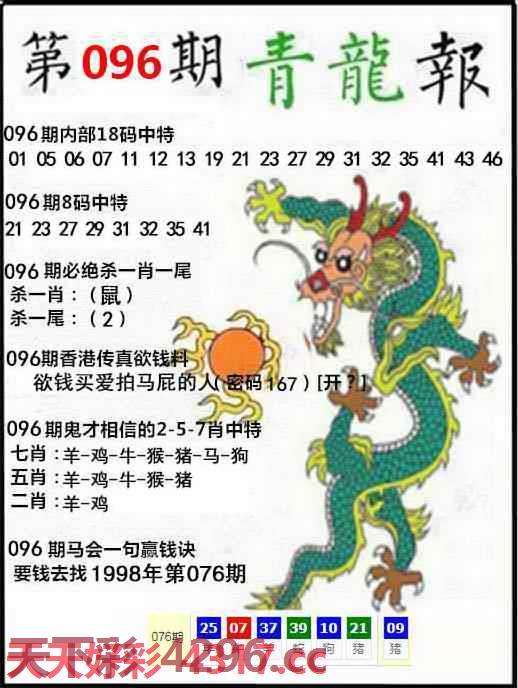 第096期 青龍報
096期内部18码中特
01 05 06 07 11 12 13 19 21 23 27 29 31 32 35 41 43 46
096期8码中特
21 23 27 29 31 32 35 41
096 期必绝杀一肖一尾
杀一肖：(鼠)
杀一尾：(2)
096期香港传真欲钱料
欲钱买爱拍马屁的人(密码167)[开?]
096期鬼才相信的2-5-7肖中特
七肖:羊-鸡-牛-猴-猪-马-狗
五肖:羊-鸡-牛-猴-猪
二肖:羊-鸡
096 期马会一句赢钱诀
要钱去找1998年第076期
076期 25 07 37 39 10 21 09
蛇 狗 猪 猪
天天好彩.44317.cc
4296